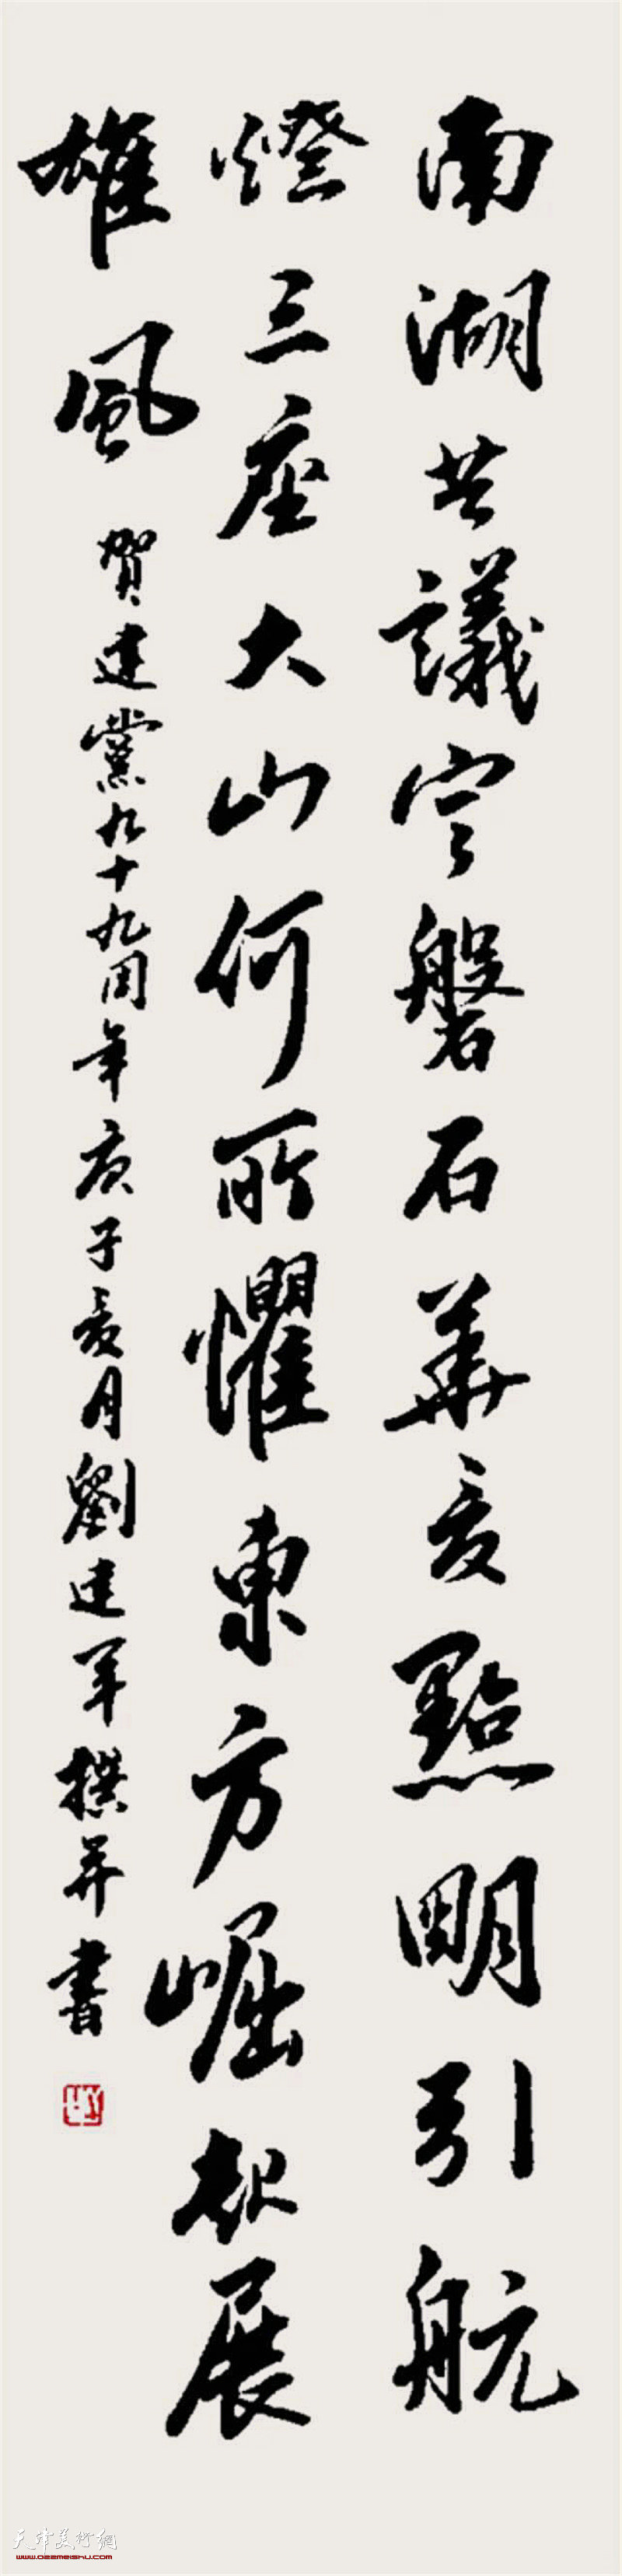 南湖共議定磐石華夏點明引航
燈三座大山何所懼東方崛起展
雄風
賀建黨九十九周年庚子夏月劉建軍撰并書
天津美術網
www.022meishu.com